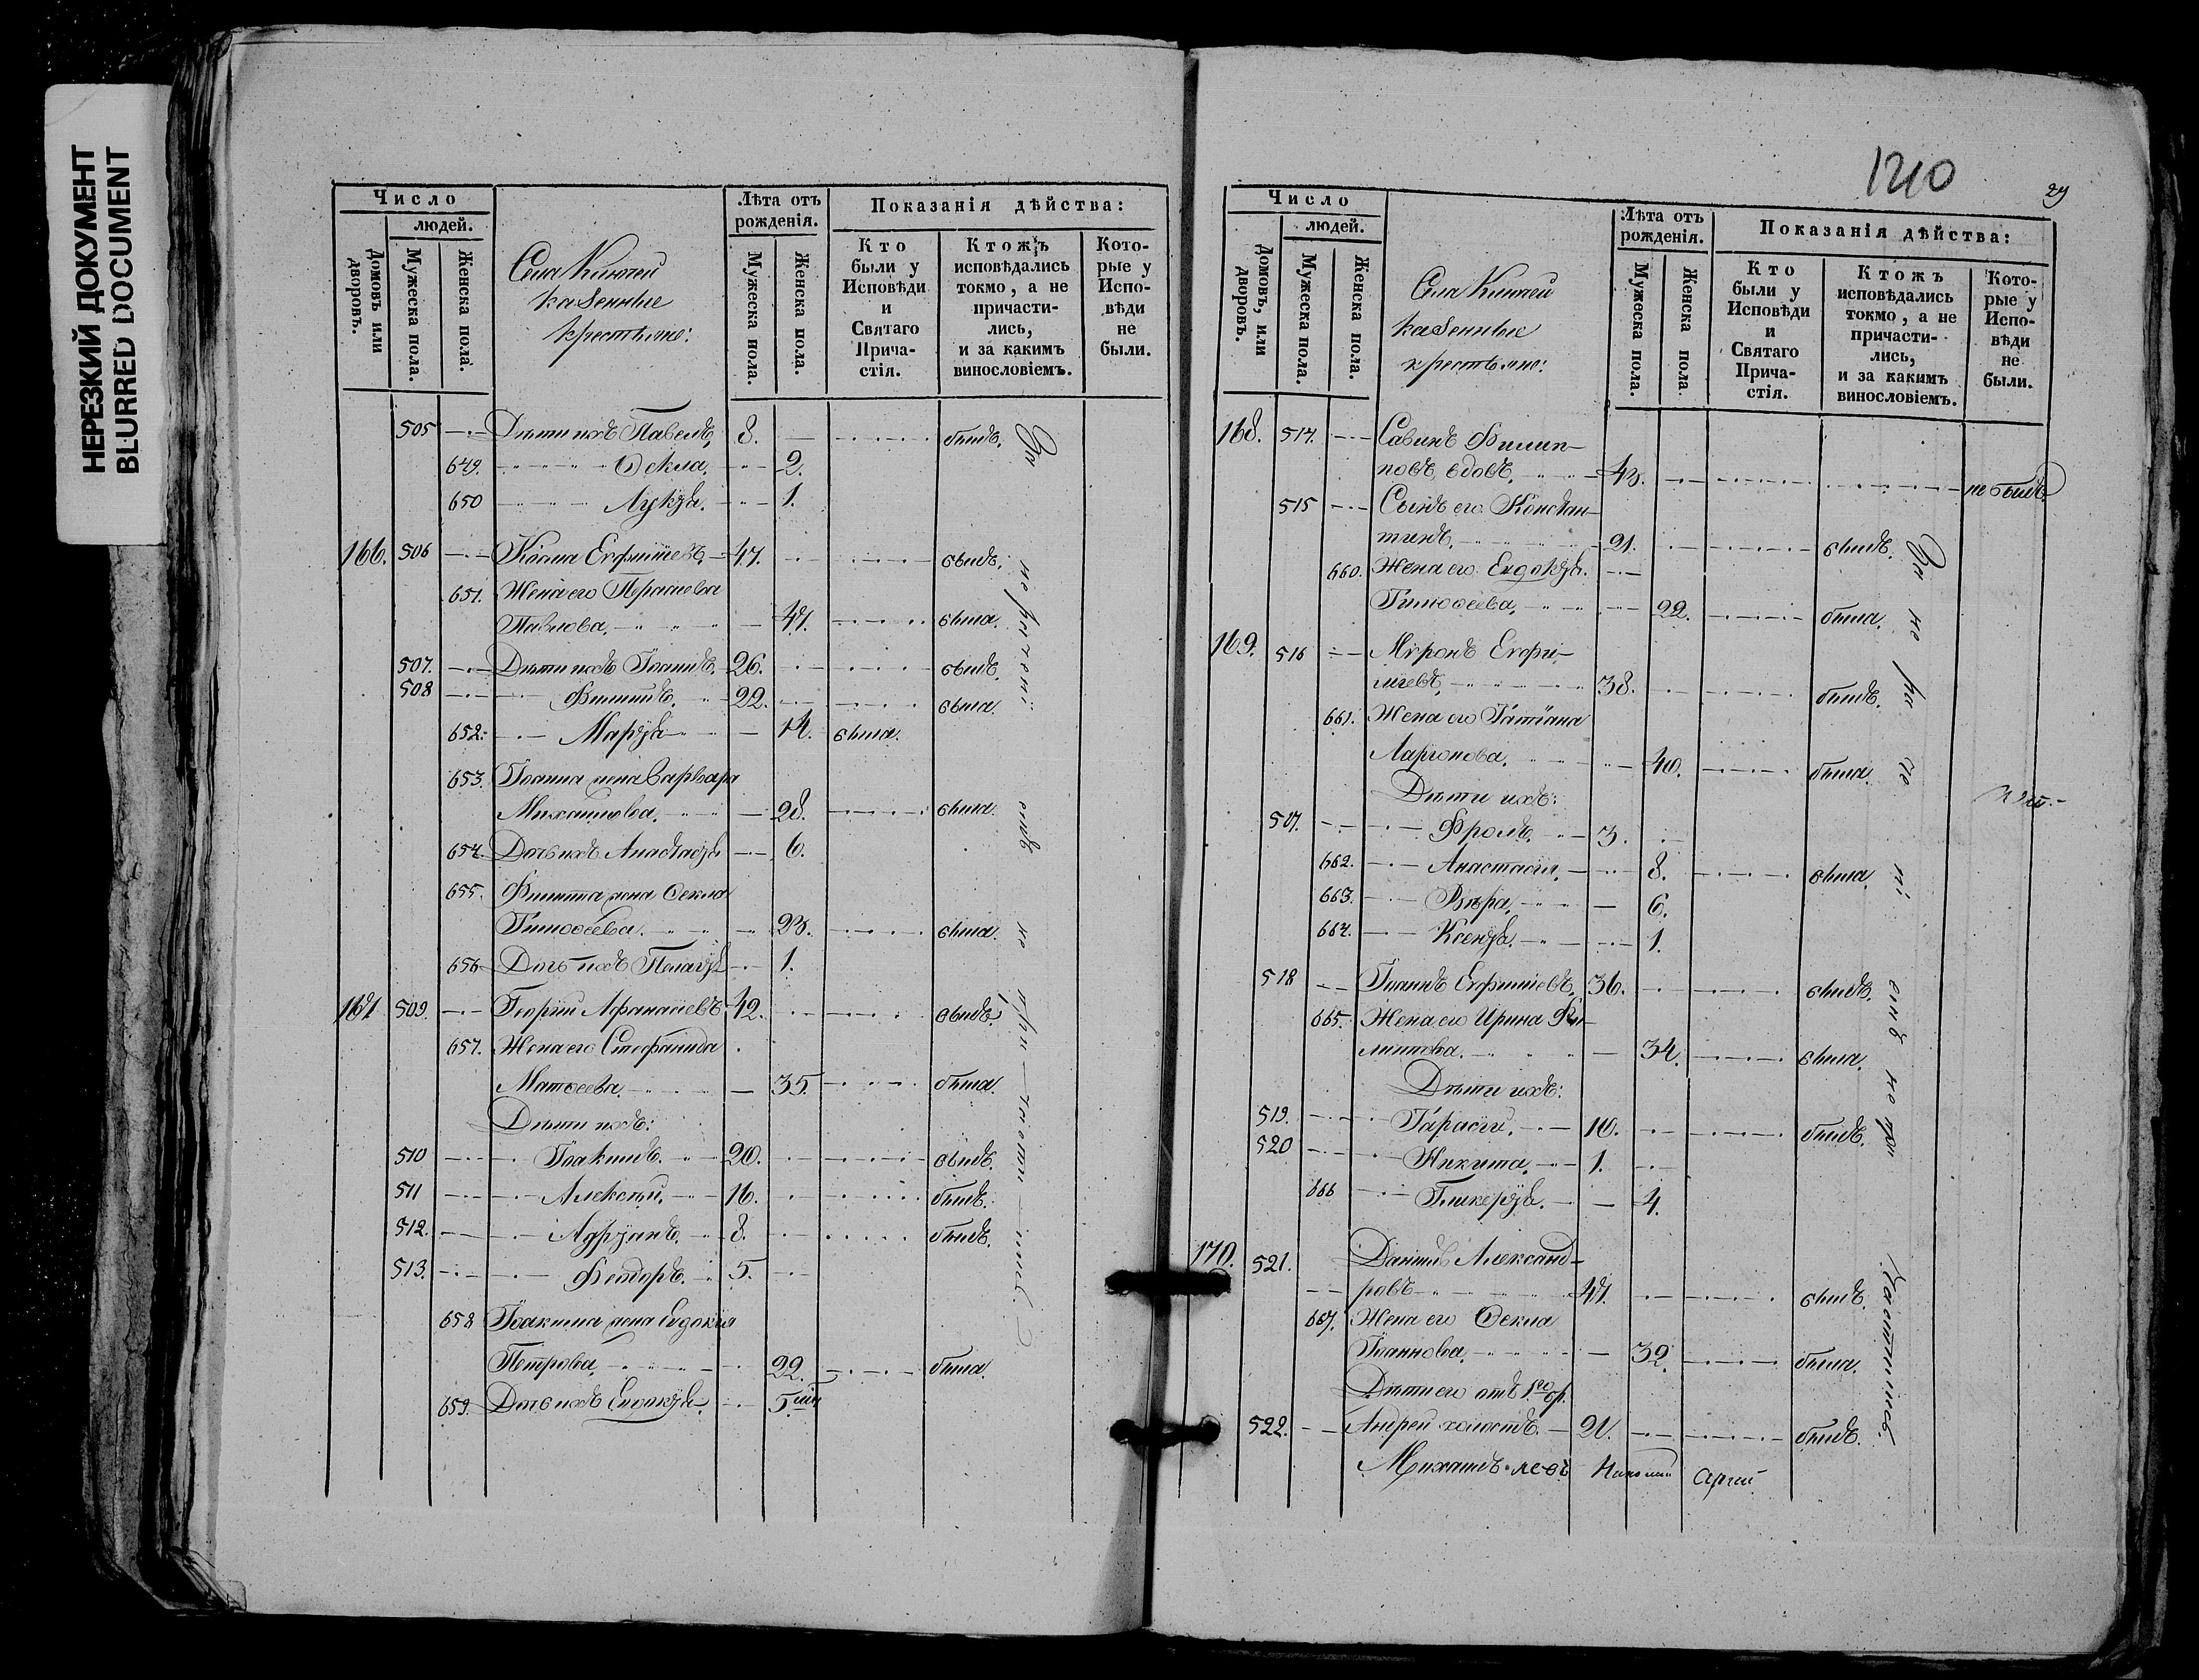 НЕРЕЗКИЙ ДОКУМЕНТ
BLURRED DOCUMENT
Число
людей.
Домовъ или дворовъ.
Мужеска пола.
Женска пола.
Села
казенные
крестьяне:
Лѣта отъ рожденія.
Мужеска пола.
Женска пола.
Показанія дѣйства:
Кто были у Исповѣди и Святаго Прича-стія.
Ктожъ исповѣдались токмо, а не причасти-лись, и за какимъ винословіемъ.
Кото-рые у Испо-вѣди не были.
505 Дѣти ихъ Павелъ, 8. былъ.
649. Ѳекла. 2.
650 Лукія. 1.
166. 506 Косма Евфиміевъ, 47. былъ.
651. Жена его Парасковья
Павлова, 47. была.
507. Дѣти ихъ Іоаннъ, 26. былъ.
508 Филиппъ, 22. была.
652. Марія 14. была.
653. Іоанна жена Варвара
Михайлова, 28. была.
654. Дочь ихъ Анастасія 6.
655. Филиппа жена Ѳекла
Тимоѳеева. 23. была.
656 Дочь ихъ Пелагія 1.
167 509. Георгій Афанасіевъ 42. былъ.
657. Жена его Стефанида
Матѳеева. 35. была.
Дѣти ихъ:
510 Іоакимъ. 20. былъ.
511 Алексѣй, 16. былъ.
512. Адріанъ, 8. былъ.
513. Феодоръ, 5.
658 Іоакима жена Евдокія
Петрова, 22. была.
659. Дочь ихъ Евдокія. 5
За
не
причасти
лись
1210
29
Число
людей.
Домовъ, или дворовъ.
Мужеска пола.
Женска пола.
Села
казенные
крестьяне:
Лѣта отъ рожденія.
Мужеска пола.
Женска пола.
Показанія дѣйства:
Кто были у Исповѣди и Святаго Прича-стія.
Ктожъ исповѣдались токмо, а не причасти-лись, и за какимъ винословіемъ.
Кото-рые у Испо-вѣди не были.
168. 514. Савинъ Филип-
повъ, вдовъ. 43. не былъ
515 Сынъ его Констан-
тинъ, 21. былъ.
660. Жена его Евдокія.
Тимоѳеева, 22. была.
169. 516 Міронъ Евфи-
міевъ, 38. былъ.
661. Жена его Татіана
Ларіонова. 40. была.
Дѣти ихъ:
517. Фролъ, 3.
662. Анастасія, 8. была.
663. Вѣра, 6.
664. Ксенія. 1.
518 Іоаннъ Евфиміевъ, 36. былъ.
665. Жена его Ирина Фи-
липпова. 34. была.
Дѣти ихъ:
519. Тарасій. 10. былъ.
520 Никита. 1.
666 Гликерія. 4.
170. 521. Даніилъ Александ-
ровъ 47. былъ.
667. Жена его Ѳекла
Іоаннова. 32. была.
Дѣти его отъ 1го бр.
522. Андрей холостъ. 21. былъ.
За не ра
не при
частились.